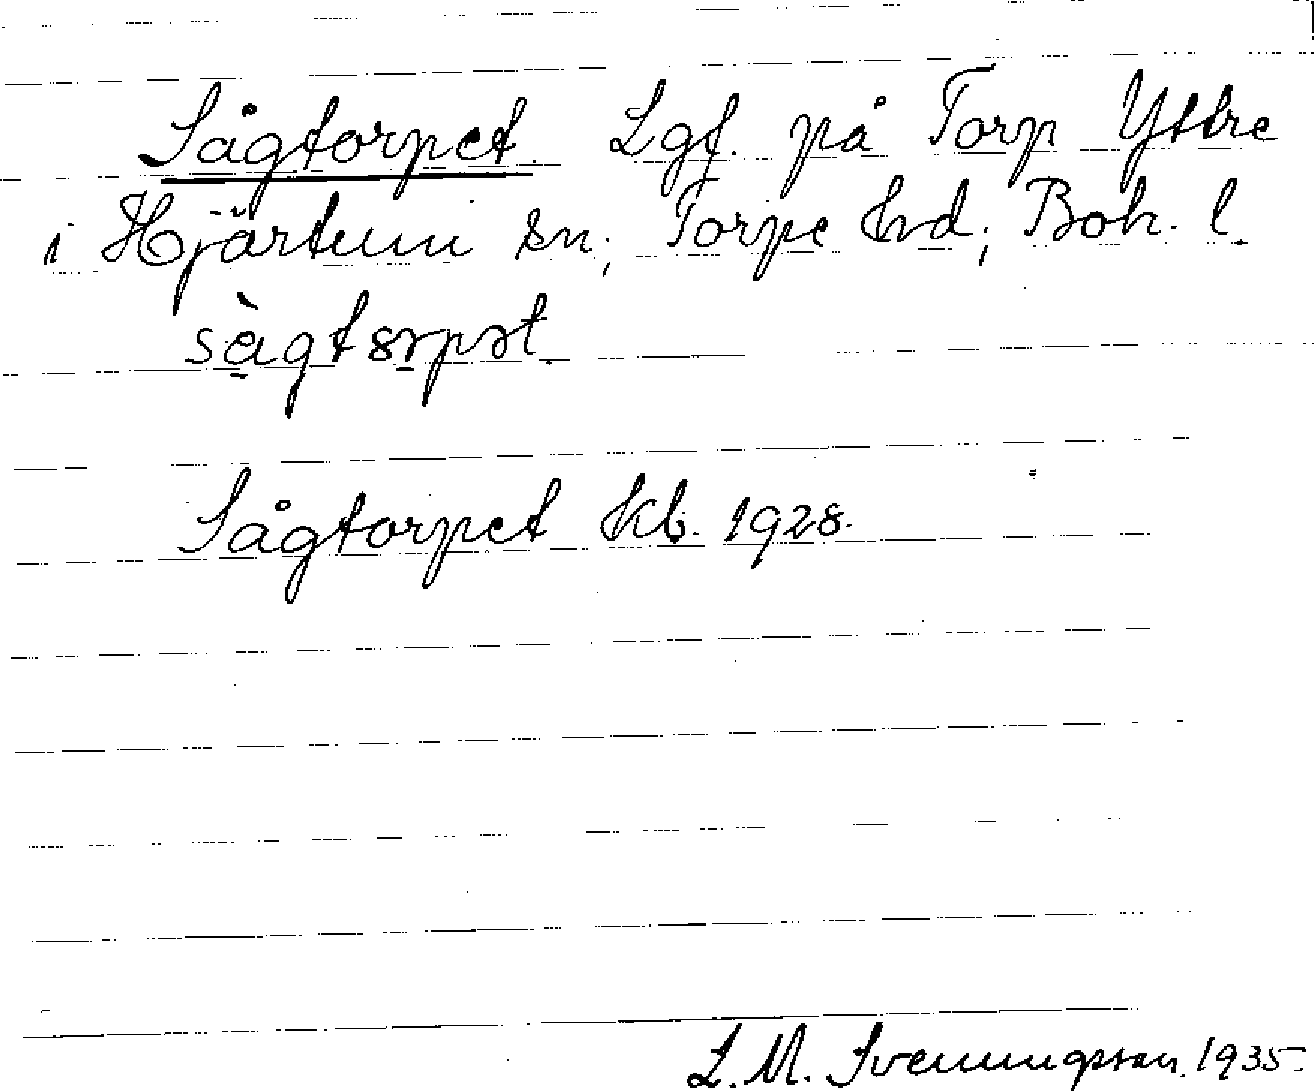 Sågtorpet Lgf. på Torp Yttre
i Hjärtum sn; Torpe hrd; Boh. l.
Sågtorpet kb. 1928.
L. M. Svenungsson. 1935.